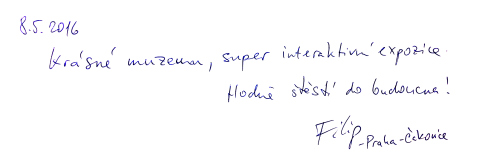 8.5.2016
Krásné muzeum, super interaktivní expozice.
Hodně štěstí do budoucna!
Filip - Praha - Čakovice